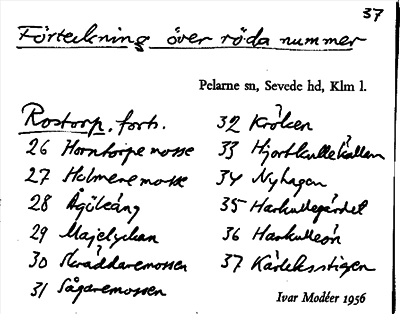 37
Förteckning över röda nummer
Pelarne sn, Sevede hd, Klm l.
Rostorp, forts.
26 Horntorpe mosse
27 Holmeremosse
28 Ågöleäng
29 Majelyckan
30 Skräddaremossen
31 Sågaremossen
32 Kröken
33 Hjortkullekällan
34 Nyhagen
35 Harkullegärdet
36 Harkulleön
37 Kärleksstigen
Ivar Modéer 1956